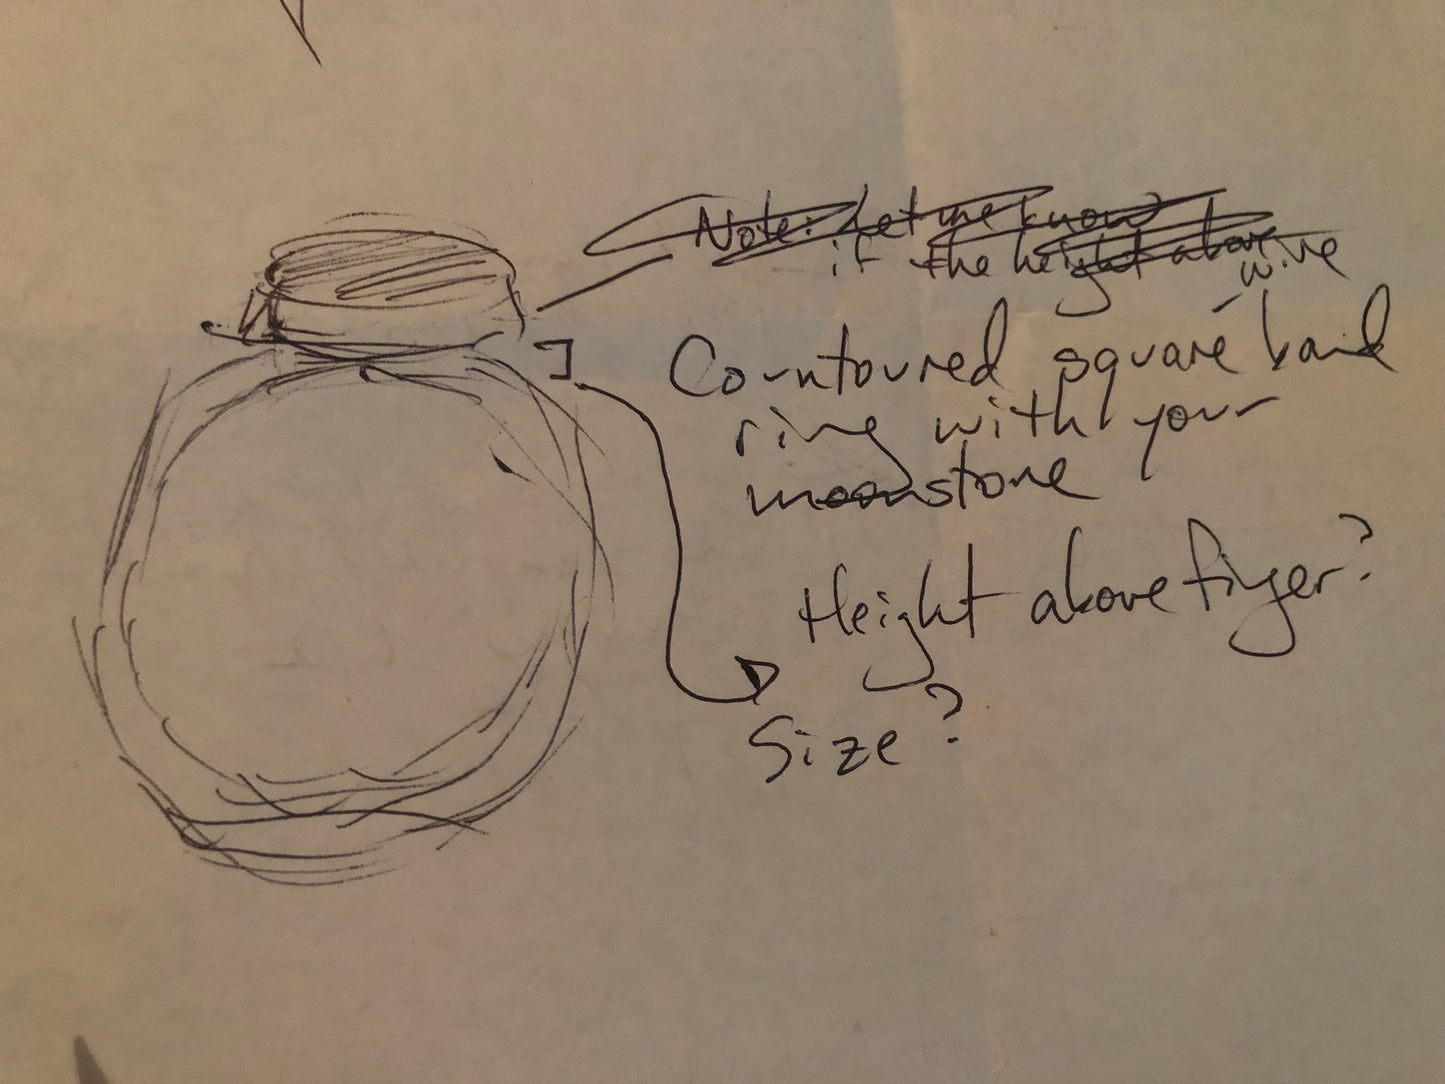 Note: Let me know
if the height above
wire
Countoured square band
ring with your
moonstone
Height above finger?
Size?